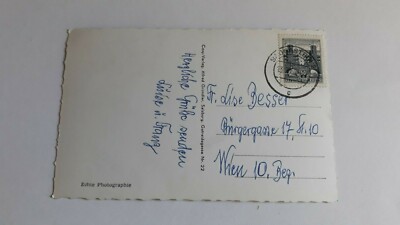 Herzliche Grüße senden
Luise u. Franz
Cosy-Verlag, Alfred Gründler, Salzburg, Getreidegasse Nr. 22
Echte Photographie
Fr. Lise Besser
Bürgergasse 17, 10
Wien 10. Bez.